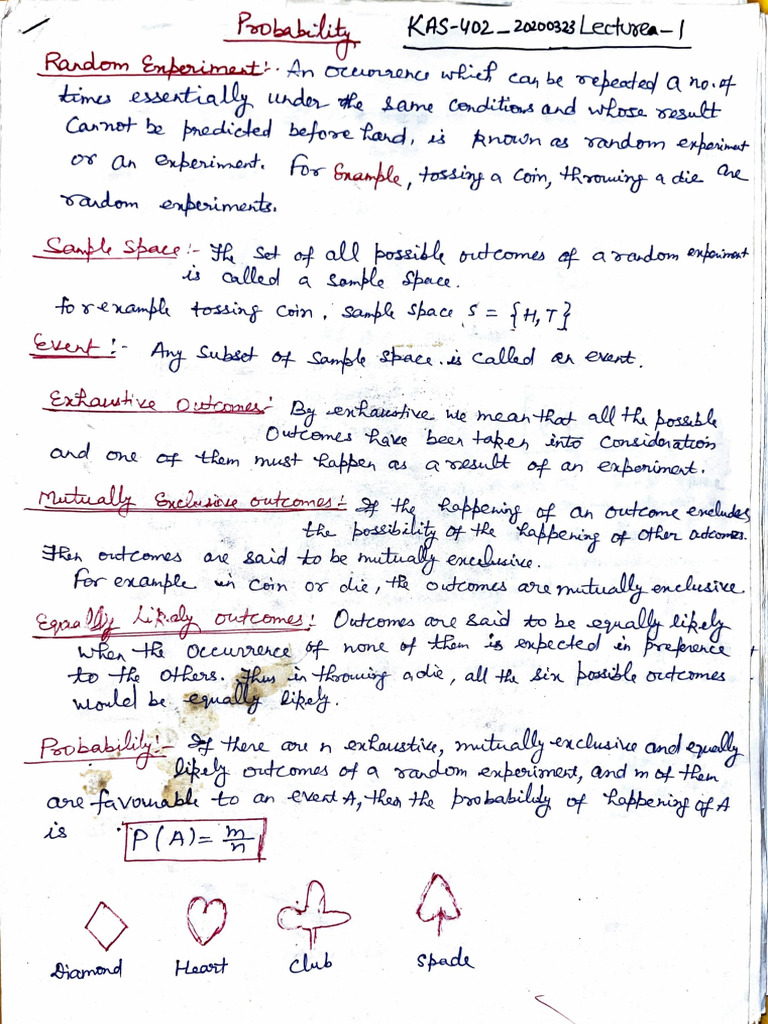 Probability KAS-402_20200323 Lecture-1
Random Experiment:- An occurrence which can be repeated a no. of
times essentially under the same conditions and whose result
Cannot be predicted before hand, is known as random experiment
or an experiment. For Example, tossing a coin, throwing a die are
random experiments.
Sample Space:- The set of all possible outcomes of a random experiment
is called a sample space.
for example tossing coin, sample space S = {H,T}
Event:- Any subset of sample space is called an event.
Exhaustive Outcomes:- By exhaustive we mean that all the possible
Outcomes have been taken into consideration
and one of them must happen as a result of an experiment.
Mutually Exclusive outcomes:- If the happening of an outcome excludes
the possibility of the happening of other outcomes.
Then outcomes are said to be mutually exclusive.
For example in coin or die, the outcomes are mutually exclusive
Equally Likely outcomes:- Outcomes are said to be equally likely
when the occurrence of none of them is expected in preference
to the others. Thus in throwing a die, all the six possible outcomes
would be equally likely.
Probability:- If there are n exhaustive, mutually exclusive and equally
likely outcomes of a random experiment, and m of them
are favourable to an event A, then the probability of happening of A
is P(A) = m/n
Diamond Heart Club Spade